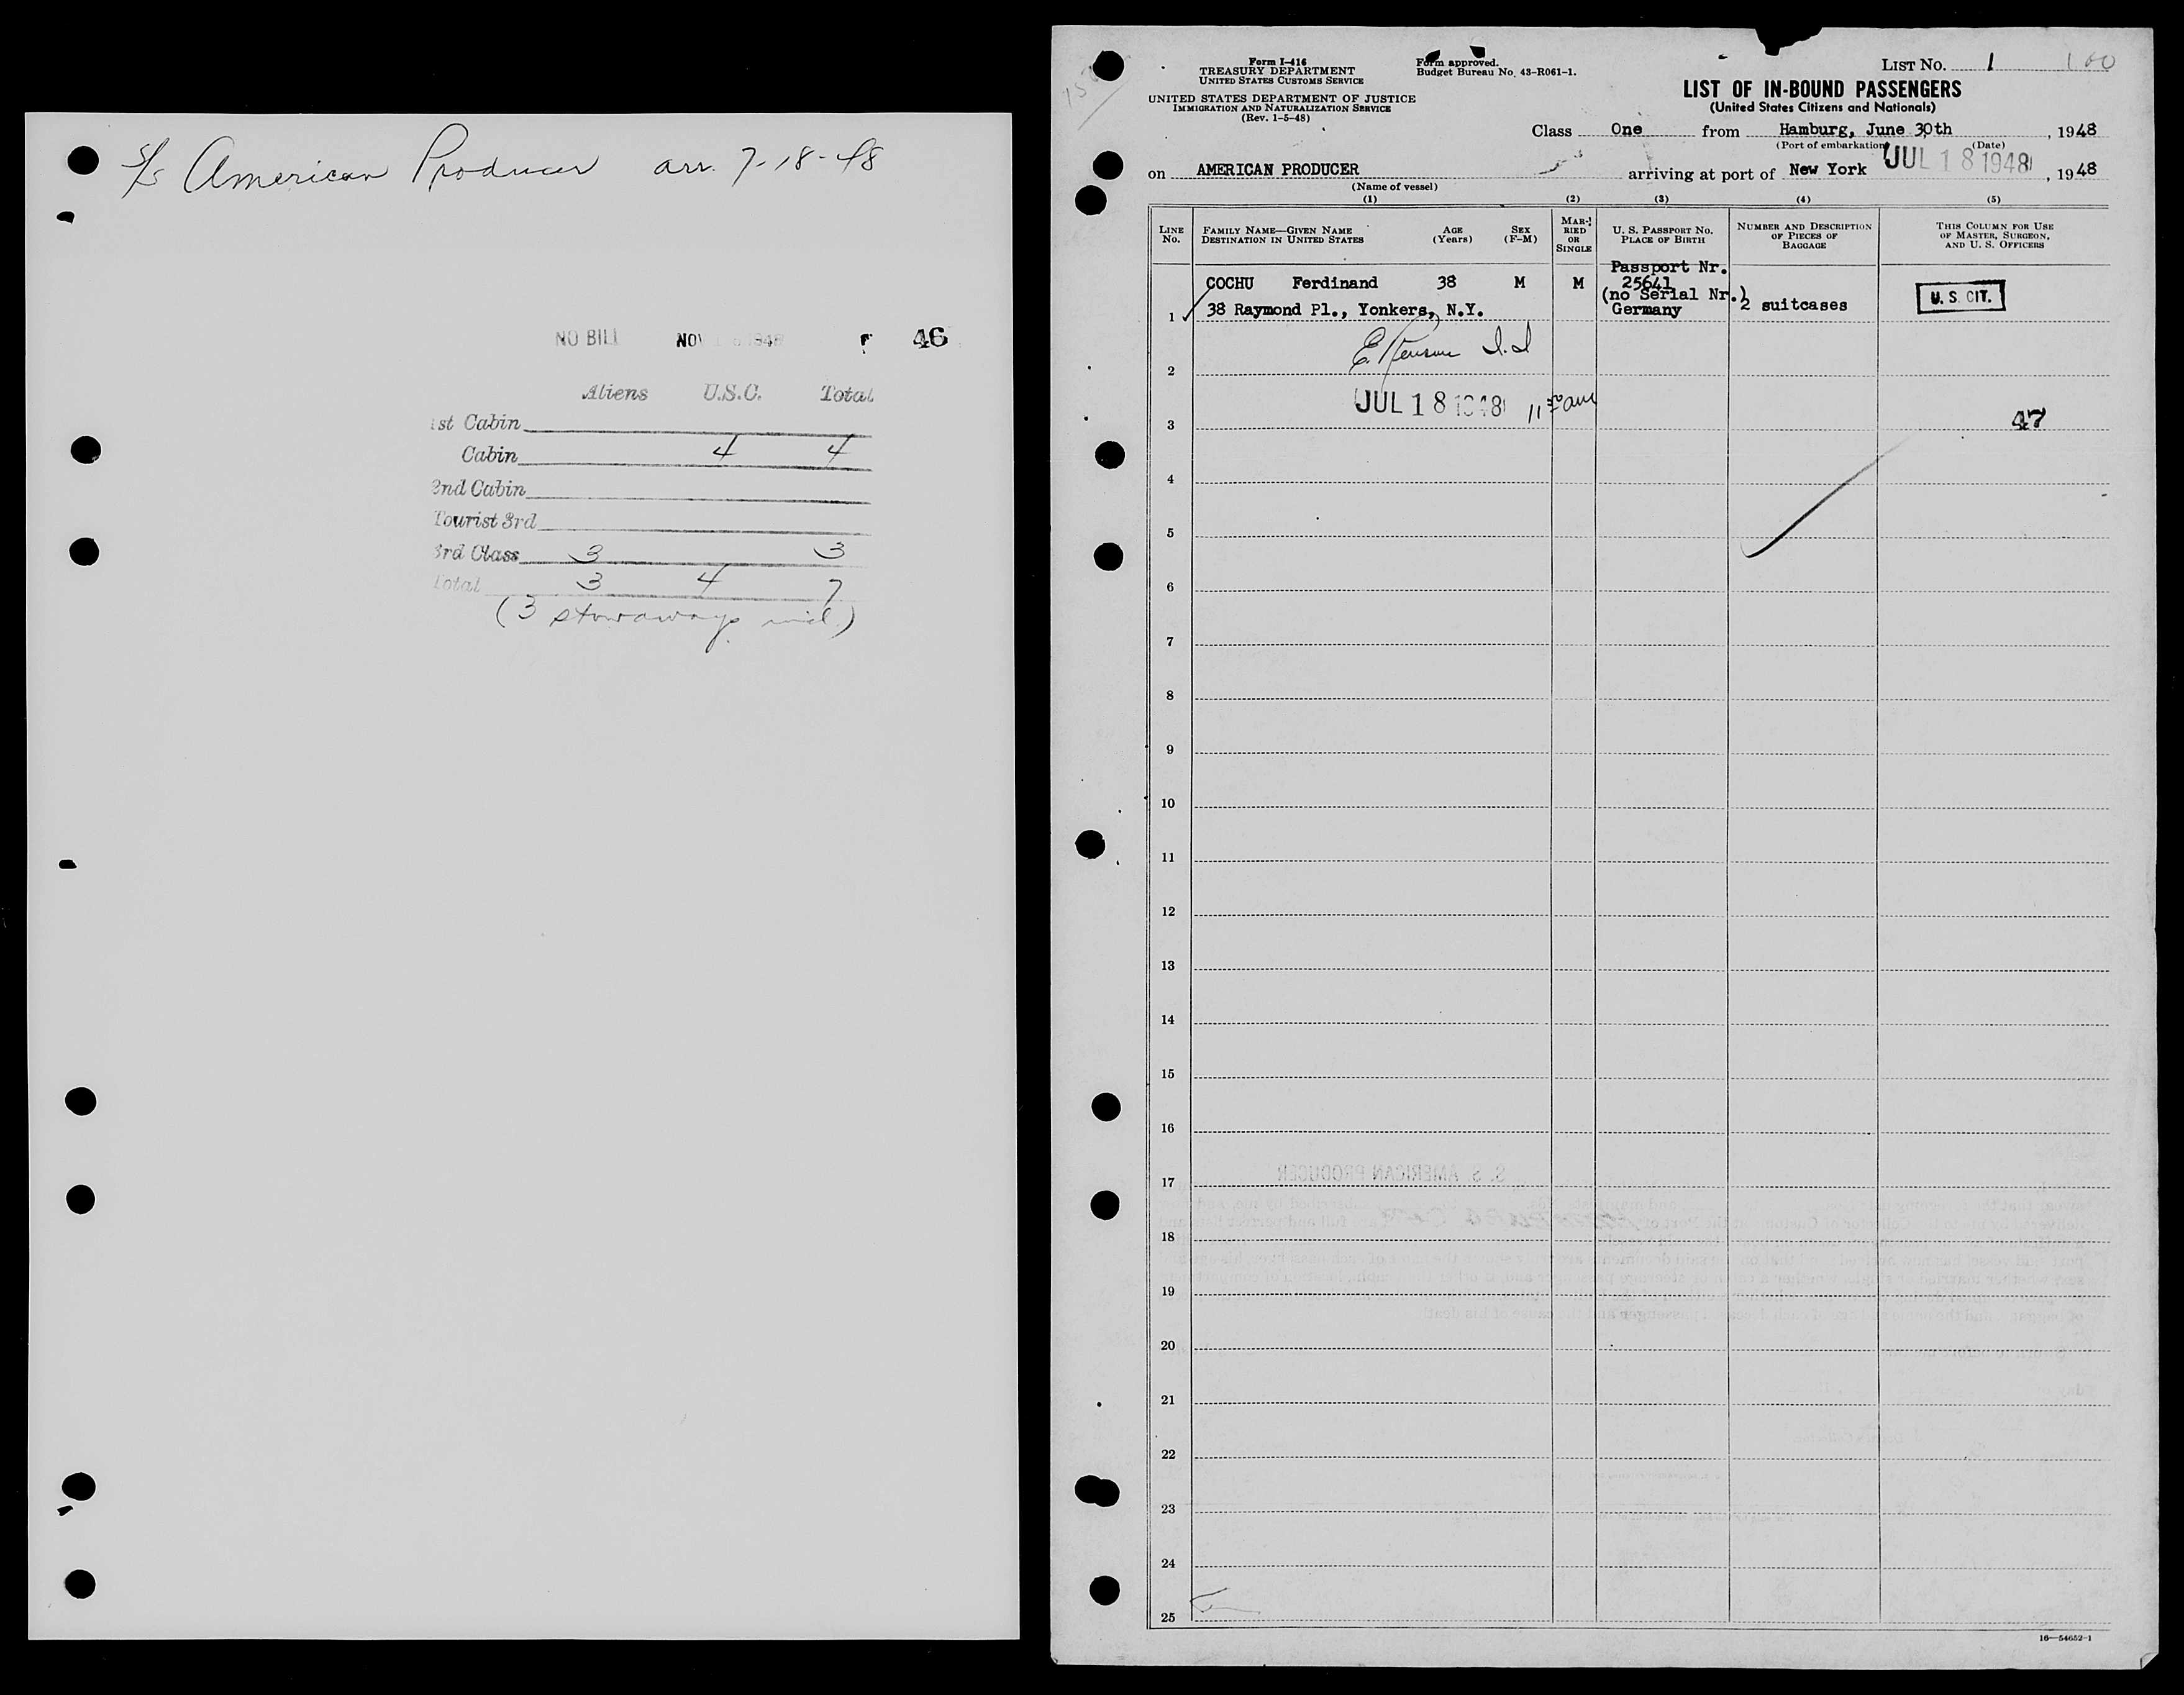 S/S American Producer arr. 7-18-48
NO BILL NOV 1948 46
Aliens U.S.C. Total
1st Cabin
Cabin 4 4
2nd Cabin
Tourist 3rd
3rd Class 3 3
Total 3 4 7
(3 stowaways incl.)
Form I-416
TREASURY DEPARTMENT
UNITED STATES CUSTOMS SERVICE
UNITED STATES DEPARTMENT OF JUSTICE
IMMIGRATION AND NATURALIZATION SERVICE
(Rev. 1-5-48)
Form approved.
Budget Bureau No. 43-R061-1.
LIST NO. 1 100
LIST OF IN-BOUND PASSENGERS
(United States Citizens and Nationals)
Class One from Hamburg, June 30th, 1948
(Port of embarkation) (Date)
on AMERICAN PRODUCER arriving at port of New York JUL 18 1948, 1948
(Name of vessel)
(1) (2) (3) (4) (5)
LINE NO.
FAMILY NAME—GIVEN NAME
DESTINATION IN UNITED STATES
AGE (Years)
SEX (F-M)
MARRIED OR SINGLE
U. S. PASSPORT NO.
PLACE OF BIRTH
NUMBER AND DESCRIPTION
OF PIECES OF
BAGGAGE
THIS COLUMN FOR USE
OF MASTER, SURGEON,
AND U. S. OFFICERS
Passport Nr.
COCHU Ferdinand 38 M M 25641
(no Serial Nr.)
U. S. CIT.
1 38 Raymond Pl., Yonkers, N.Y. Germany 2 suitcases
2
JUL 18 1948 11 30 am
3 47
4
5
6
7
8
9
10
11
12
13
14
15
16
S. S. AMERICAN PRODUCER
17
18
19
20
21
22
23
24
25
16—54652-1